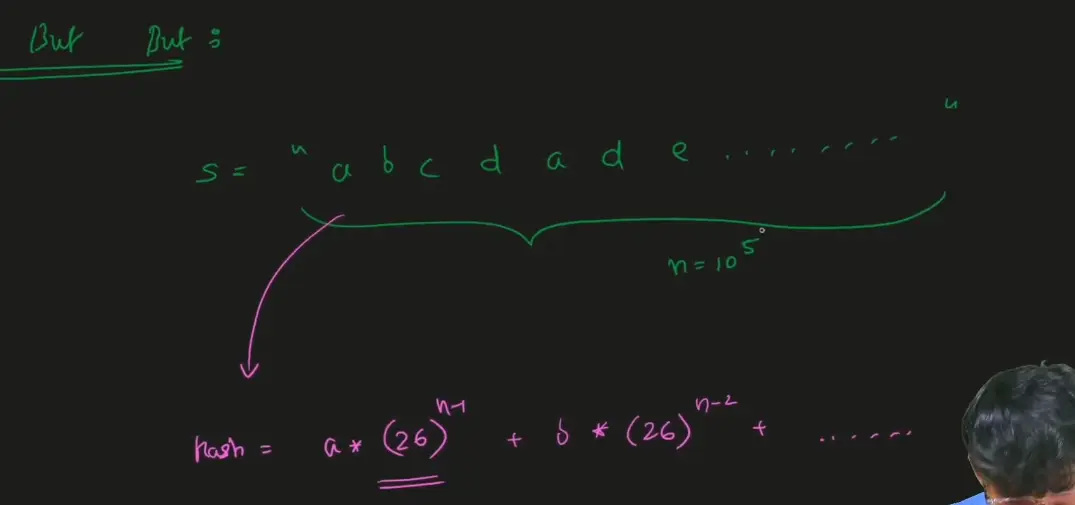 But But :
s = " a b c d a d e ......... "
n = 10^5
hash = a * (26)^n-1 + b * (26)^n-2 + ......